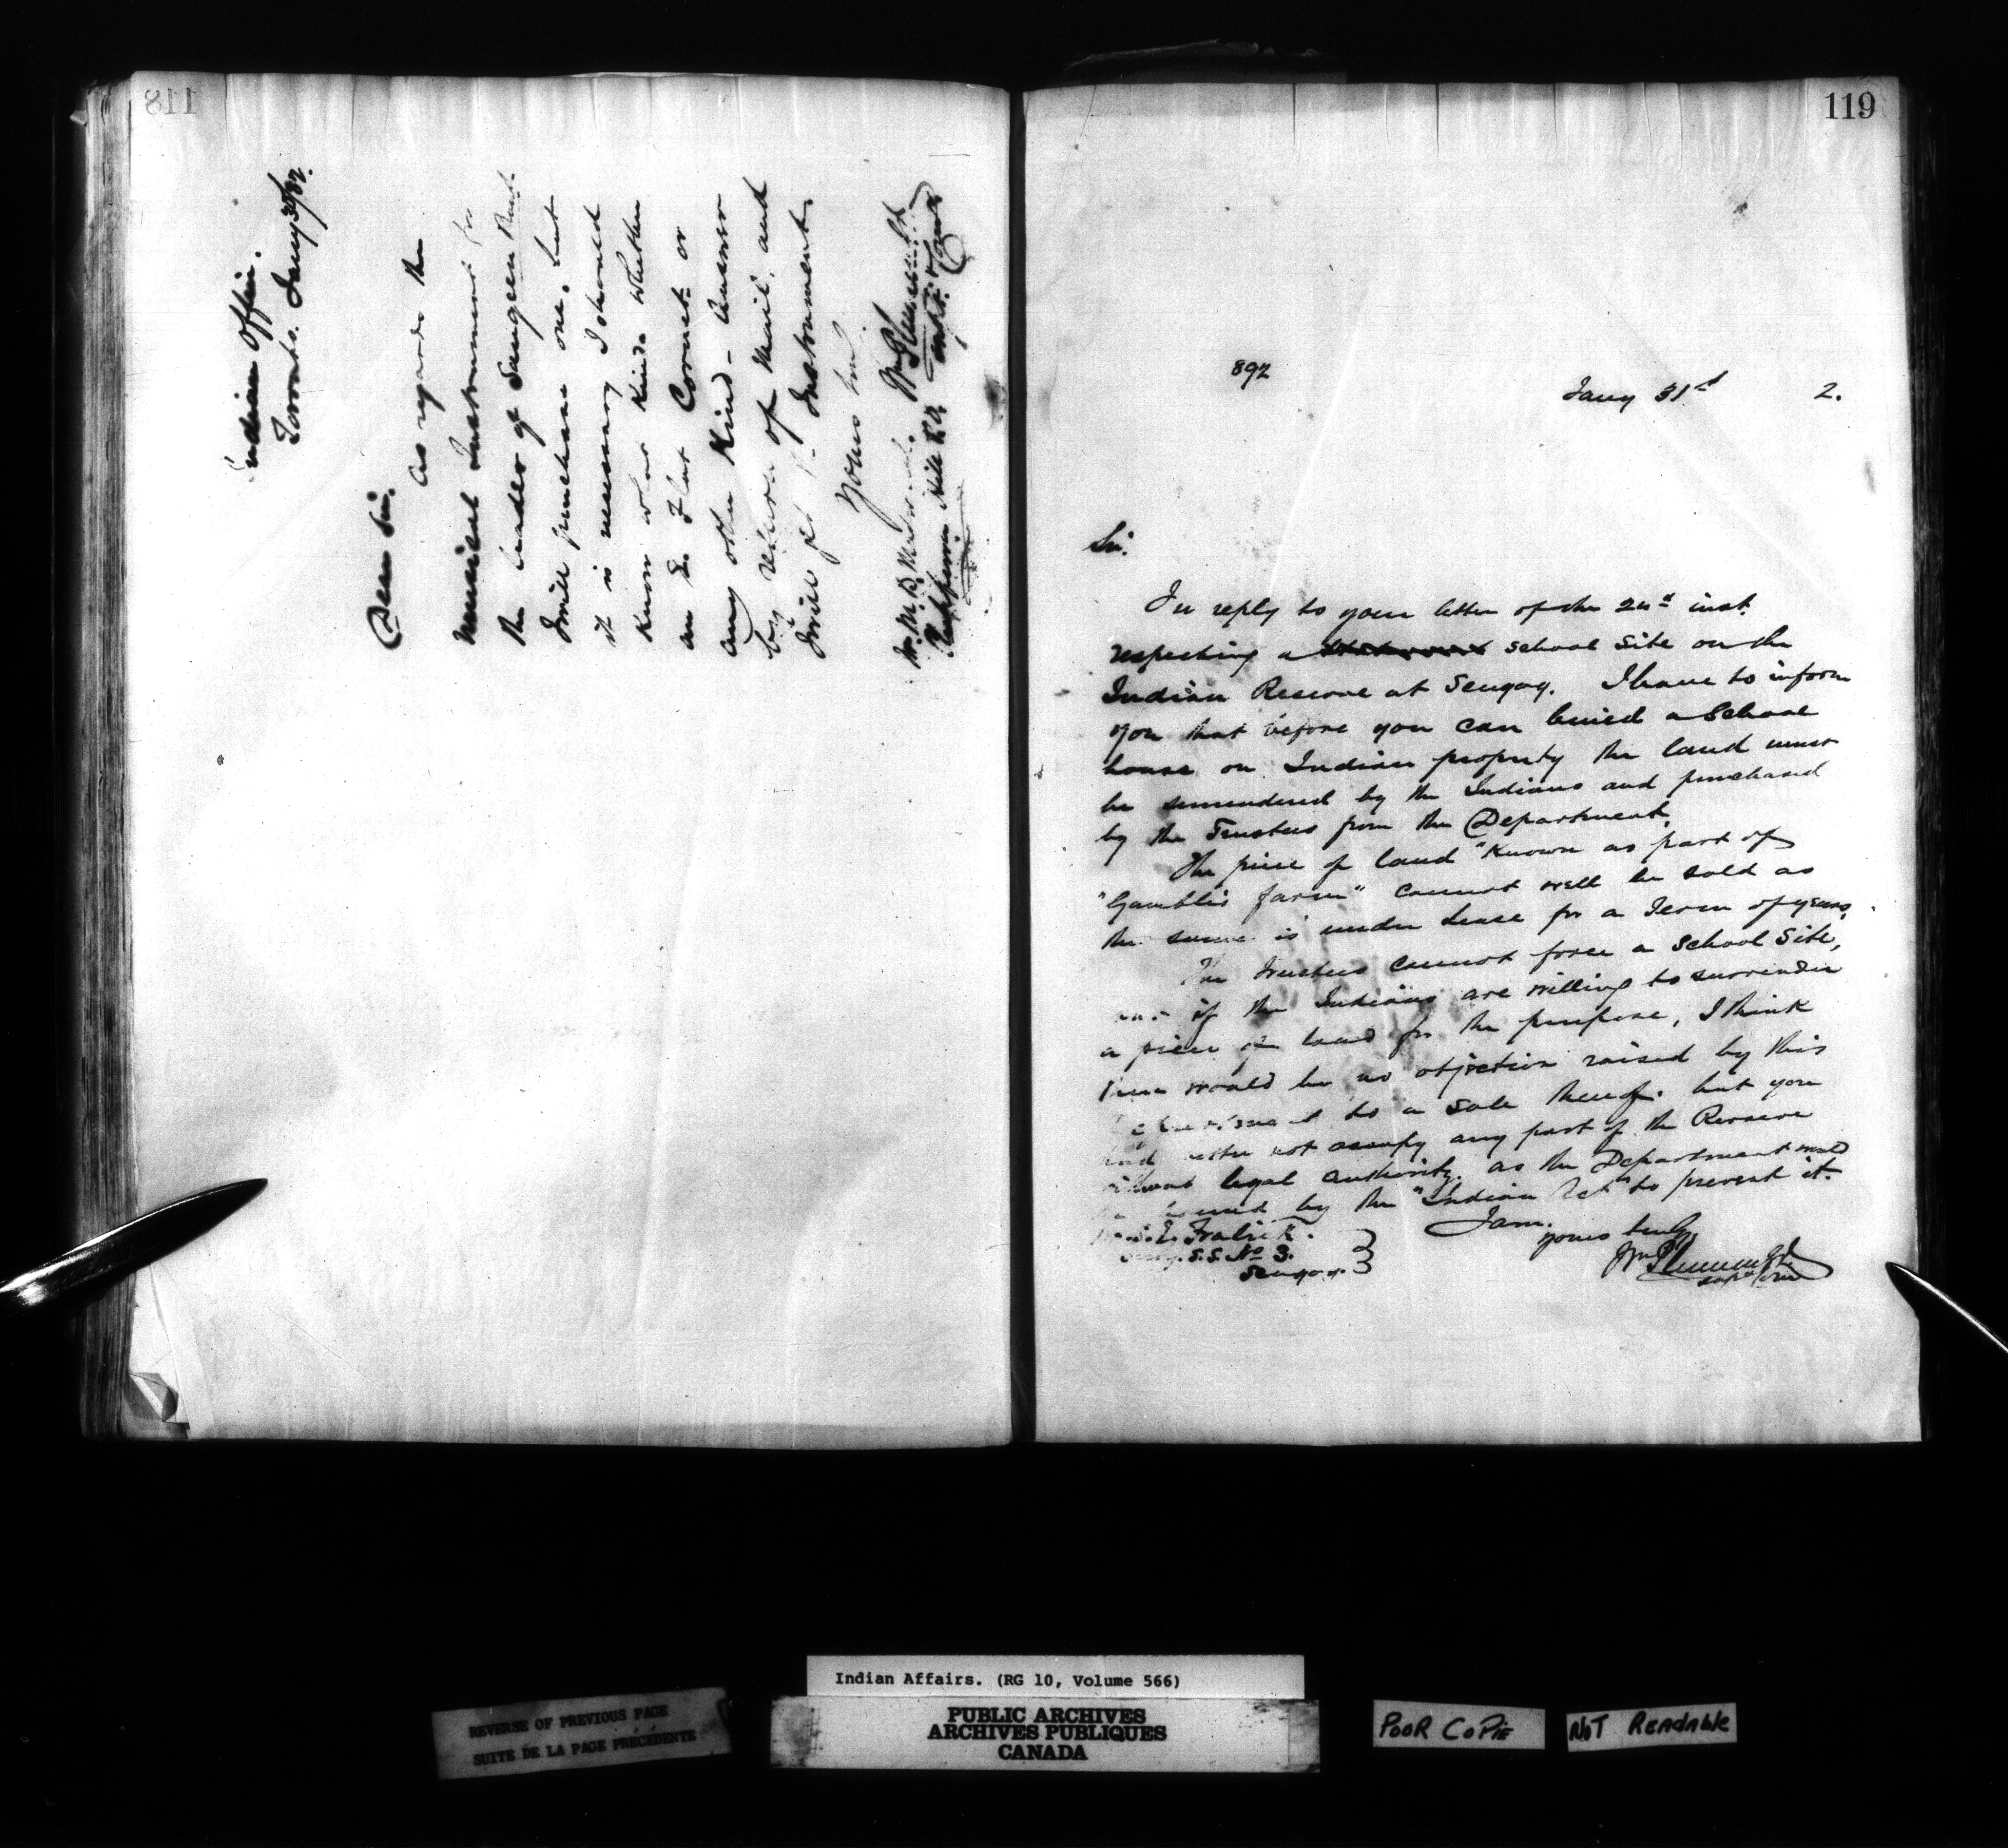 118
Indian Office.
Toronto. Jany 30/82.
Dear Sir.
As regards the
Musical Instrument for
the leader of Saugeen Band
I will purchase one, but
it is necessary I should
Know what Kind. Whether
an E. Flat Cornet or
any other Kind - Answer
by return of Mail, and
I will get the Instrument.
Yours truly
Wm Plummer
Supt. & Comr
Mr. M. B.
Chippewa Hill P.O.
119
892
Jany 31st 2.
Sir.
In reply to your letter of the 24th inst.
respecting a school site on the
Indian Reserve at Scugog. I have to inform
you that before you can build a School
house on Indian property the land must
be surrendered by the Indians and purchased
by the Trustees from the Department.
The piece of land "Known as part of
"Gambles farm" cannot well be sold as
the same is under Lease for a Term of years,
The Trustees cannot force a School Site,
but if the Indians are willing to surrender
a piece of land for the purpose, I think
there would be no objection raised by this
Department to a sale thereof. but you
had better not occupy any part of the Reserve
without legal authority. as the Department would
be bound by the "Indian Act" to prevent it.
I am.
yours truly
Wm Plummer
Supt & Comr
E. Fralick.
Secy. S.S. No 3.
Scugog.
Indian Affairs. (RG 10, Volume 566)
PUBLIC ARCHIVES
ARCHIVES PUBLIQUES
CANADA
REVERSE OF PREVIOUS PAGE
SUITE DE LA PAGE PRÉCÉDENTE
POOR COPIE
NOT READABLE